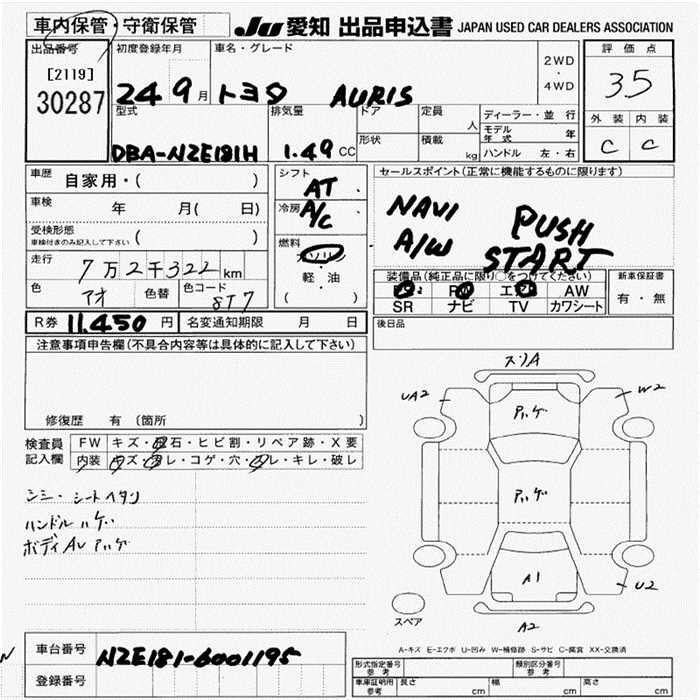 車内保管・守衛保管 JU 愛知 出品申込書 JAPAN USED CAR DEALERS ASSOCIATION
出品番号 初度登録年月 車名・グレード 2WD・4WD 評価点
[2119]
30287 24 9月 トヨタ AURIS 35
型式 排気量 ドア 定員 人 ディーラー・並行 外装 内装
DBA-NZE181H 1.49 CC 形状 積載 kg モデル年式 年 C C
ハンドル 左・右
車歴 自家用・( ) シフト AT セールスポイント(正常に機能するものに限ります)
車検 年 月( 日) 冷房 A/C NAVI PUSH
受検形態 車検付きのみ記入して下さい ( ) A/W START
走行 7万2千322km 燃料 ガソリン・軽・油 ( )
装備品(純正品に限り○をつけてください) 新車保証書
色 アオ 色替 色コード 8T7 PS PW エアB AW 有・無
SR ナビ TV カワシート
R券 11,450円 名変通知期限 月 日 後日品
注意事項申告欄(不具合内容等は具体的に記入して下さい)
修復歴 有 (箇所 )
検査員記入欄 FW キズ・飛石・ヒビ割・リペア跡・X要
内装 キズ・ヨゴレ・コゲ・穴・スレ・キレ・破レ
シミ・シートヘタリ
ハンドルハゲ
ボディAUアハゲ
スリA
UA2 W2
アハゲ
アハゲ
A1
U2
A2
スペア
A-キズ E-エクボ U-凹み W-補修跡 S-サビ C-腐食 XX-交換済
車台番号 NZE181-6001195
登録番号
形式指定番号 参考 類別区分番号 参考
車庫証明用 参考 長さ cm 幅 cm 高さ cm